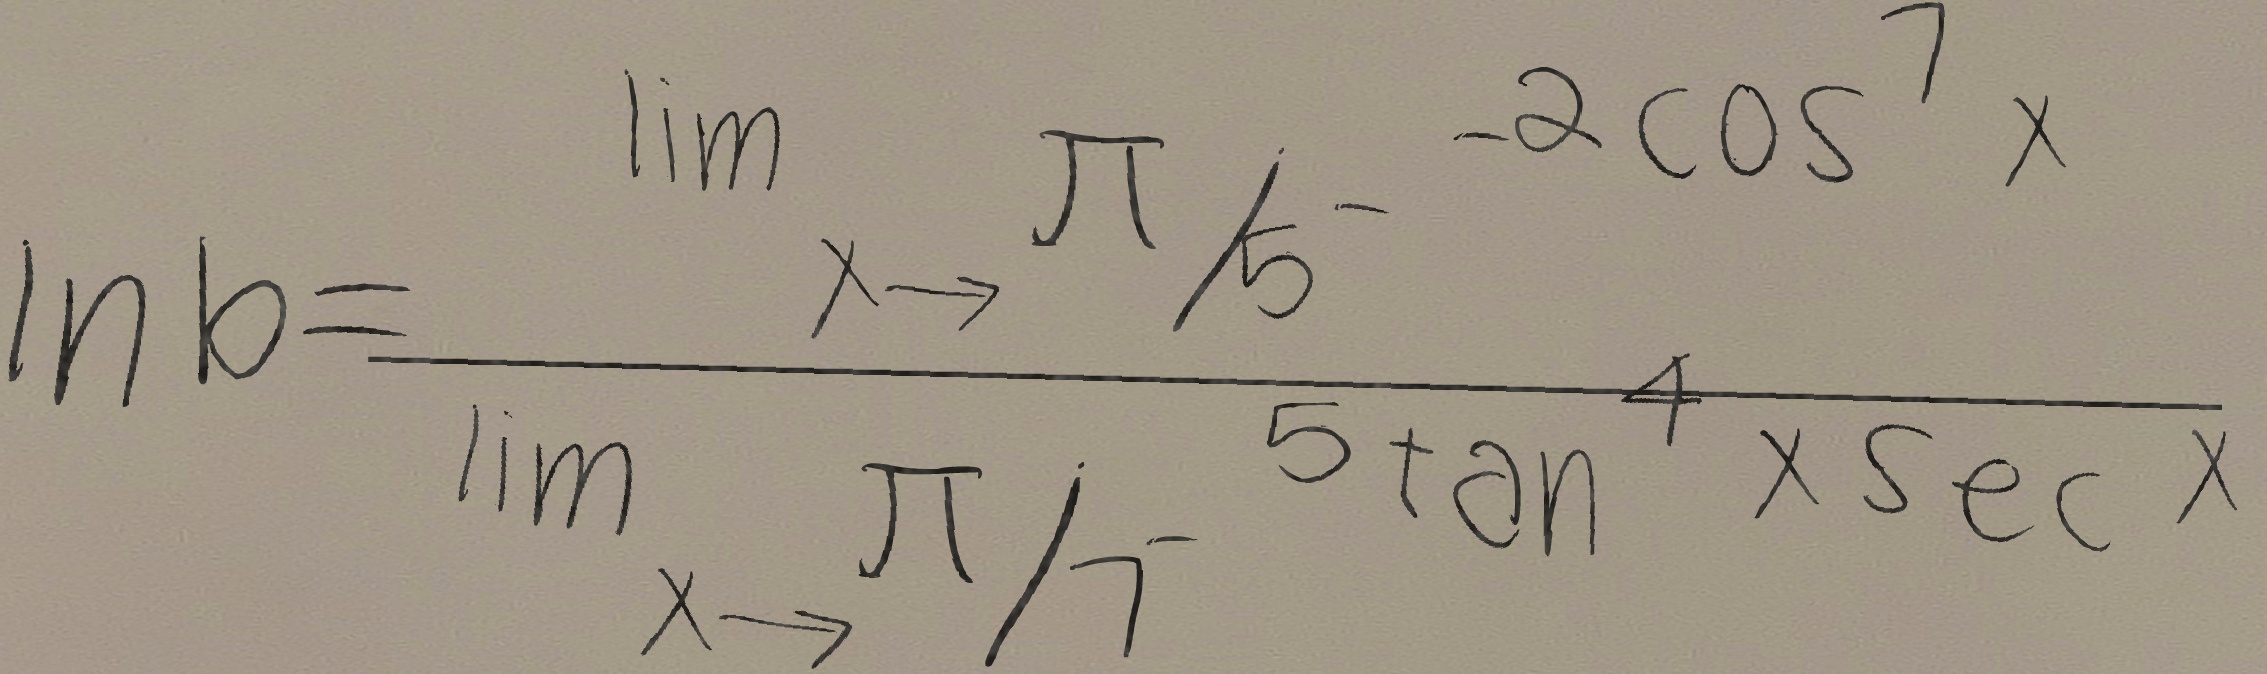 ln b = \frac{\lim_{x \to \pi/5^-} -2\cos^7 x}{\lim_{x \to \pi/7^-} 5\tan^4 x \sec x}